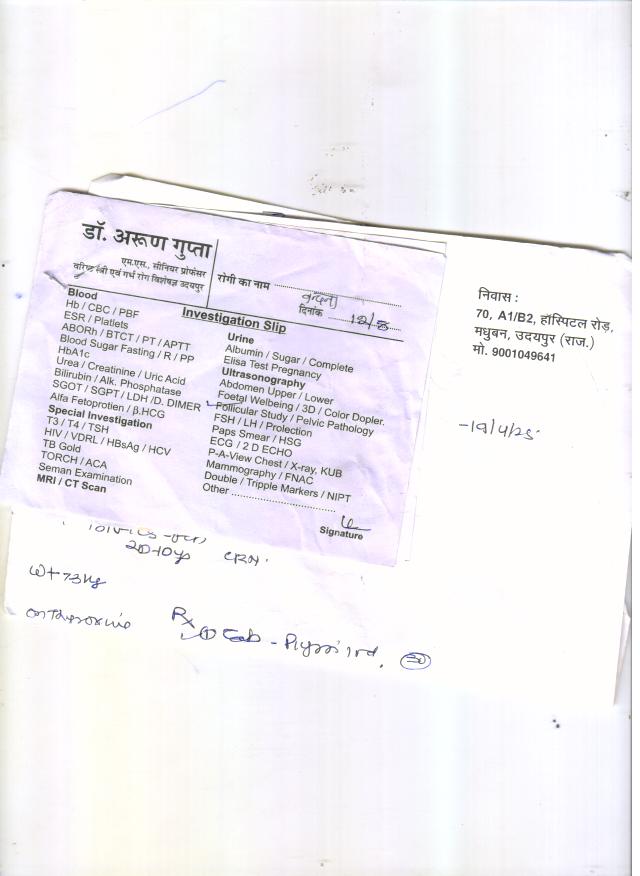 डॉ. अरूण गुप्ता
एम.एस., सीनियर प्रोफेसर
वरिष्ठ स्त्री एवं गर्भ रोग विशेषज्ञ उदयपुर
रोगी का नाम
दिनांक 12/5
Investigation Slip
Blood
Hb / CBC / PBF
ESR / Platlets
ABORh / BTCT / PT / APTT
Blood Sugar Fasting / R / PP
HbA1c
Urea / Creatinine / Uric Acid
Bilirubin / Alk. Phosphatase
SGOT / SGPT / LDH /D. DIMER
Alfa Fetoprotien / β.HCG
Special Investigation
T3 / T4 / TSH
HIV / VDRL / HBsAg / HCV
TB Gold
TORCH / ACA
Seman Examination
MRI / CT Scan
Urine
Albumin / Sugar / Complete
Elisa Test Pregnancy
Ultrasonography
Abdomen Upper / Lower
Foetal Welbeing / 3D / Color Dopler.
Follicular Study / Pelvic Pathology
FSH / LH / Prolection
Paps Smear / HSG
ECG / 2 D ECHO
P-A-View Chest / X-ray, KUB
Mammography / FNAC
Double / Tripple Markers / NIPT
Other
Signature
निवास :
70, A1/B2, हॉस्पिटल रोड़,
मधुबन, उदयपुर (राज.)
मो. 9001049641
-19/4/25
wt 73kg
Rx ① Tab -